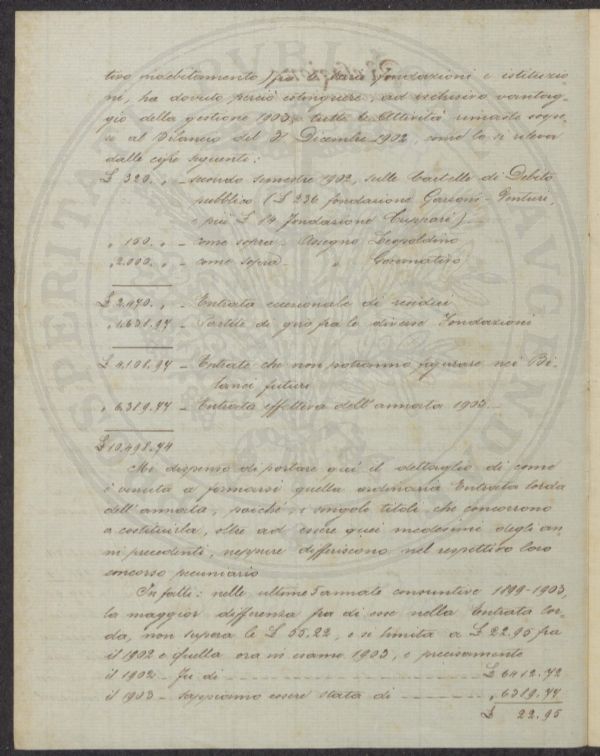 tivo indebitamento fra le varie fondazioni e istituzio
ni, ha dovuto perciò estinguere, ad esclusivo vantag-
gio della gestione 1903, tutte le Attività rimaste
al Bilancio del 31 Dicembre 1902, come lo si rileva
dalle cifre seguenti:
£ 320. „ - secondo semestre 1902, sulle Cartelle di Debito
pubblico (£ 236 fondazione Garzoni-Venturi,
e più £ 14 fondazione
„ 150. „ - come sopra - Assegno Leopoldino
„ 2.000. „ - come sopra - „ Governativo
£ 2.470. „ - Entrata eccezionale di residui
„ 1.631.97 - Partite di giro fra le diverse Fondazioni
£ 4.101.97 - Entrate che non potranno figurare nei Bi-
lanci futuri
„ 6.319.77 - Entrata effettiva dell'annata 1903 -
Mi dispenso di portare qui il dettaglio di come
è venuta a formarsi quella ordinaria Entrata lorda
dell'annata, poichè i singoli titoli, che concorrono
a costituirla, oltre ad essere quei medesimi degli an-
ni precedenti, neppure differiscono nel respettivo loro
concorso pecuniario
Infatti: nelle ultime 5 annate consuntive 1899-1903,
la maggior differenza fra di esse nella Entrata lor-
da, non supera le £ 55.22, e si limita a £ 22.95 fra
il 1902 e quella ora in esame 1903, e precisamente
il 1902 - fu di - - - £ 6412.72
il 1903 - sappiamo essere stata di - - - „ 6319.77
£ 22.95